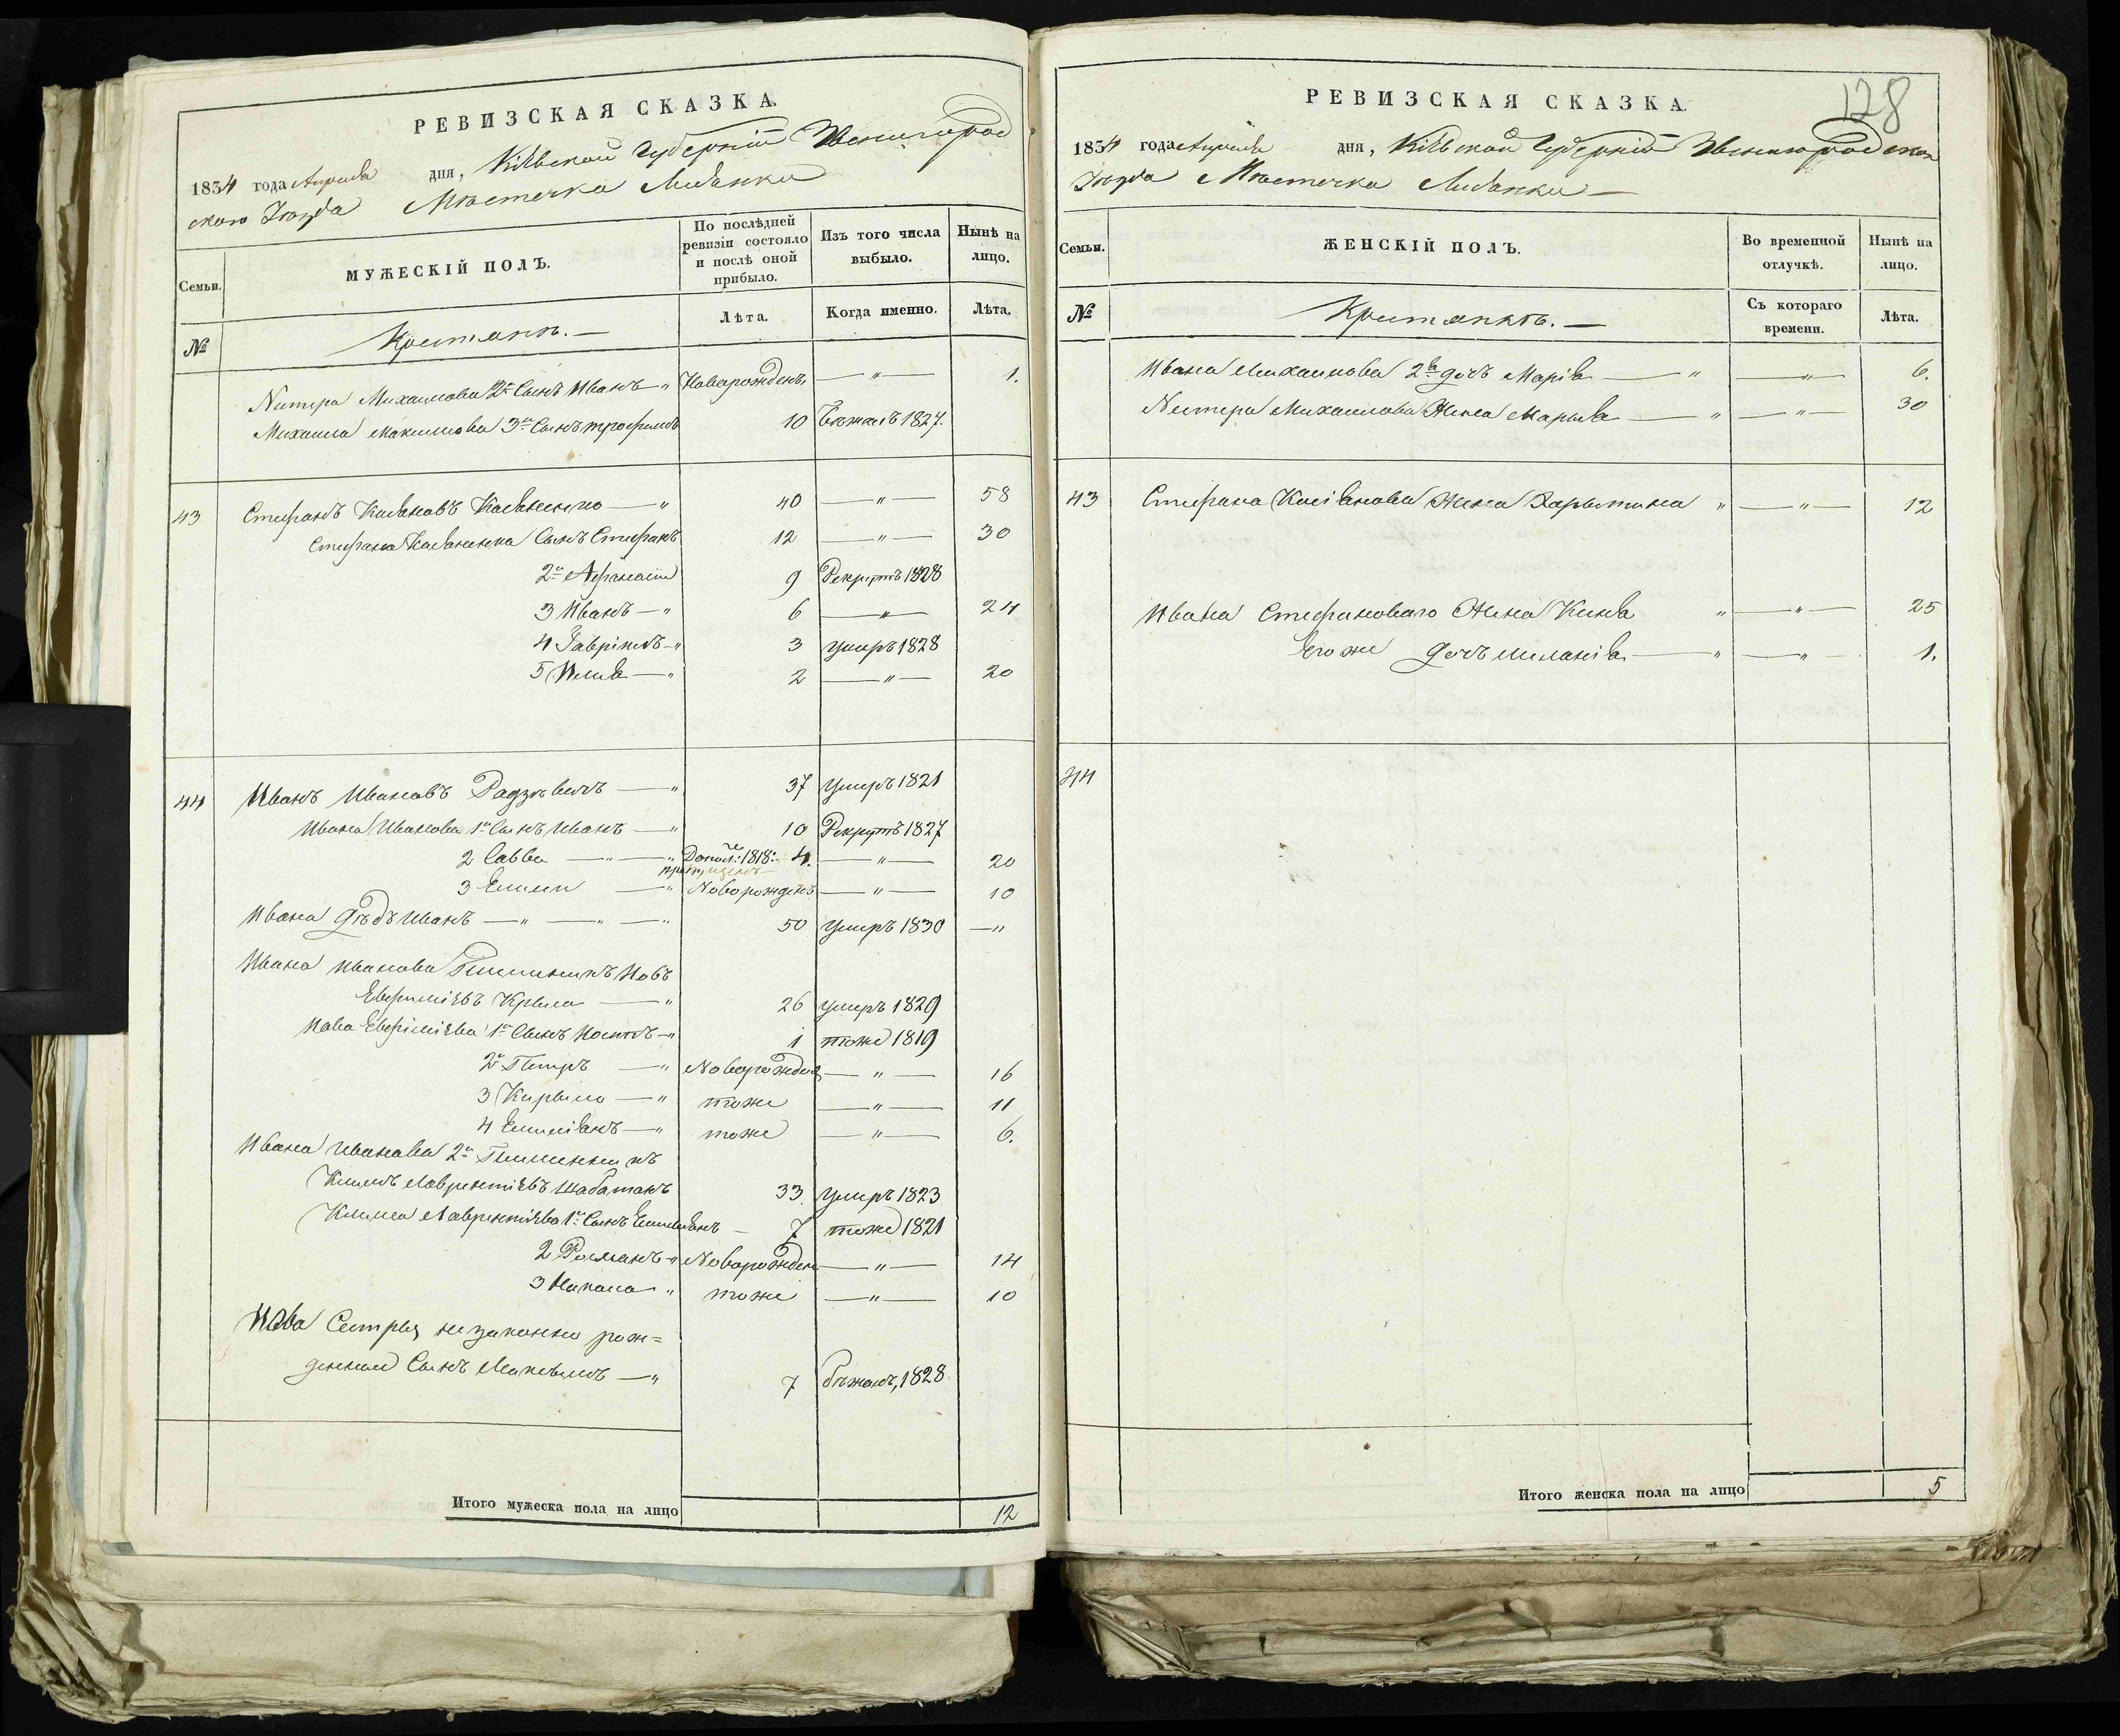 РЕВИЗСКАЯ СКАЗКА.
1834 года Апреля дня, Кіевской Губерніи Звенигород
ского Уѣзда Мѣстечка Лисянки
Семьи. МУЖЕСКІЙ ПОЛЪ. По послѣдней ревизіи состояло и послѣ оной прибыло. Изъ того числа выбыло. Нынѣ на лицо.
№ Крестянъ. — Лѣта. Когда именно. Лѣта.
Нестера Михаилова 2й Сынъ Иванъ — " Новорожденъ — " — 1.
Михаила Максимова 3й Сынъ Трофимъ 10 Бѣжалъ 1827.
43 Стефанъ Касіановъ — " 40 — " — 58
Стефана Сынъ Стефанъ 12 — " — 30
2й Афанасій 9 Рекрутъ 1828
3 Иванъ — " 6 — " — 24
4 Гавріилъ — " 3 умеръ 1828
5 Илія — " 2 — " — 20
44 Иванъ Ивановъ Радзѣвилъ — " 37 умеръ 1821
Ивана Иванова 1й Сынъ Иванъ — " 10 Рекрутъ 1827
2 Савва — " — " 1818: 4. — " — 20
3 — " Новорожденъ — " — 10
Ивана дѣдъ Иванъ — " — " — " 50 умеръ 1830 — "
Ивана Иванова Племенникъ Іовъ
Евфиміевъ Крыса — " 26 умеръ 1829
Іова Евфиміева 1й Сынъ Іосифъ — " 1 тоже 1819
2й Петръ — " Новорожден — " — 16
3 Кирыло — " тоже — " — 11
4 Емиліанъ — " тоже — " — 6.
Ивана Иванова 2й Племенникъ
Климъ Лаврентіевъ Шабатанъ 33 умеръ 1823
Клима Лаврентіева 1й Сынъ Емиліанъ — 7 тоже 1821
2 Романъ — " Новорожден — " — 14
3 Никола " тоже — " — 10
Іова Сестры незаконно рож=
денный Сынъ Максымъ — " 7 бѣжалъ, 1828
Итого мужеска пола на лицо 12
128
РЕВИЗСКАЯ СКАЗКА.
1834 года Апреля дня, Кіевской Губерніи Звенигородскаго
Уѣзда Мѣстечка Лисянки —
Семьи. ЖЕНСКІЙ ПОЛЪ. Во временной отлучкѣ. Нынѣ на лицо.
№ Крестянкъ. — Съ котораго времени. Лѣта.
Ивана Михаилова 2я дочь Марія — " — " — 6.
Нестера Михаилова Жена Марыя — " — " — 30
43 Стефана Касіанова Жена Харытина " — " — 12
Ивана Стефановаго Жена " — " — 25
Его же дочь Меланія — " — " — 1.
44
Итого женска пола на лицо 5